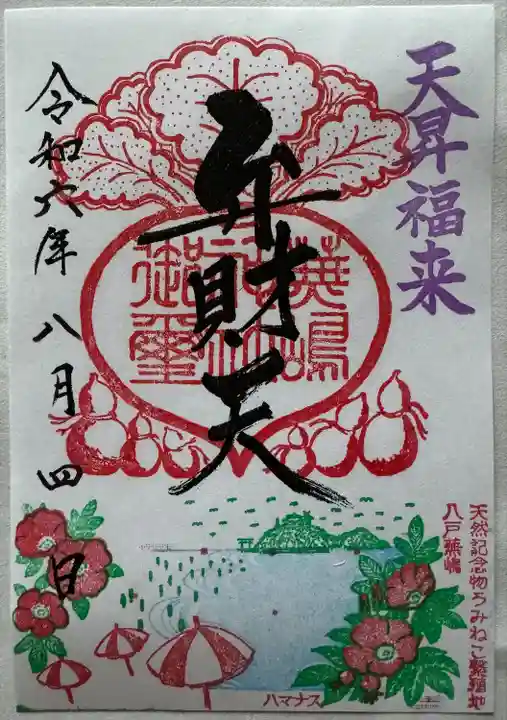 天昇福来
弁財天
蕪嶋
神社
御璽
令和六年八月四日
天然記念物うみねこ繁殖地
八戸蕪嶋
ハマナス